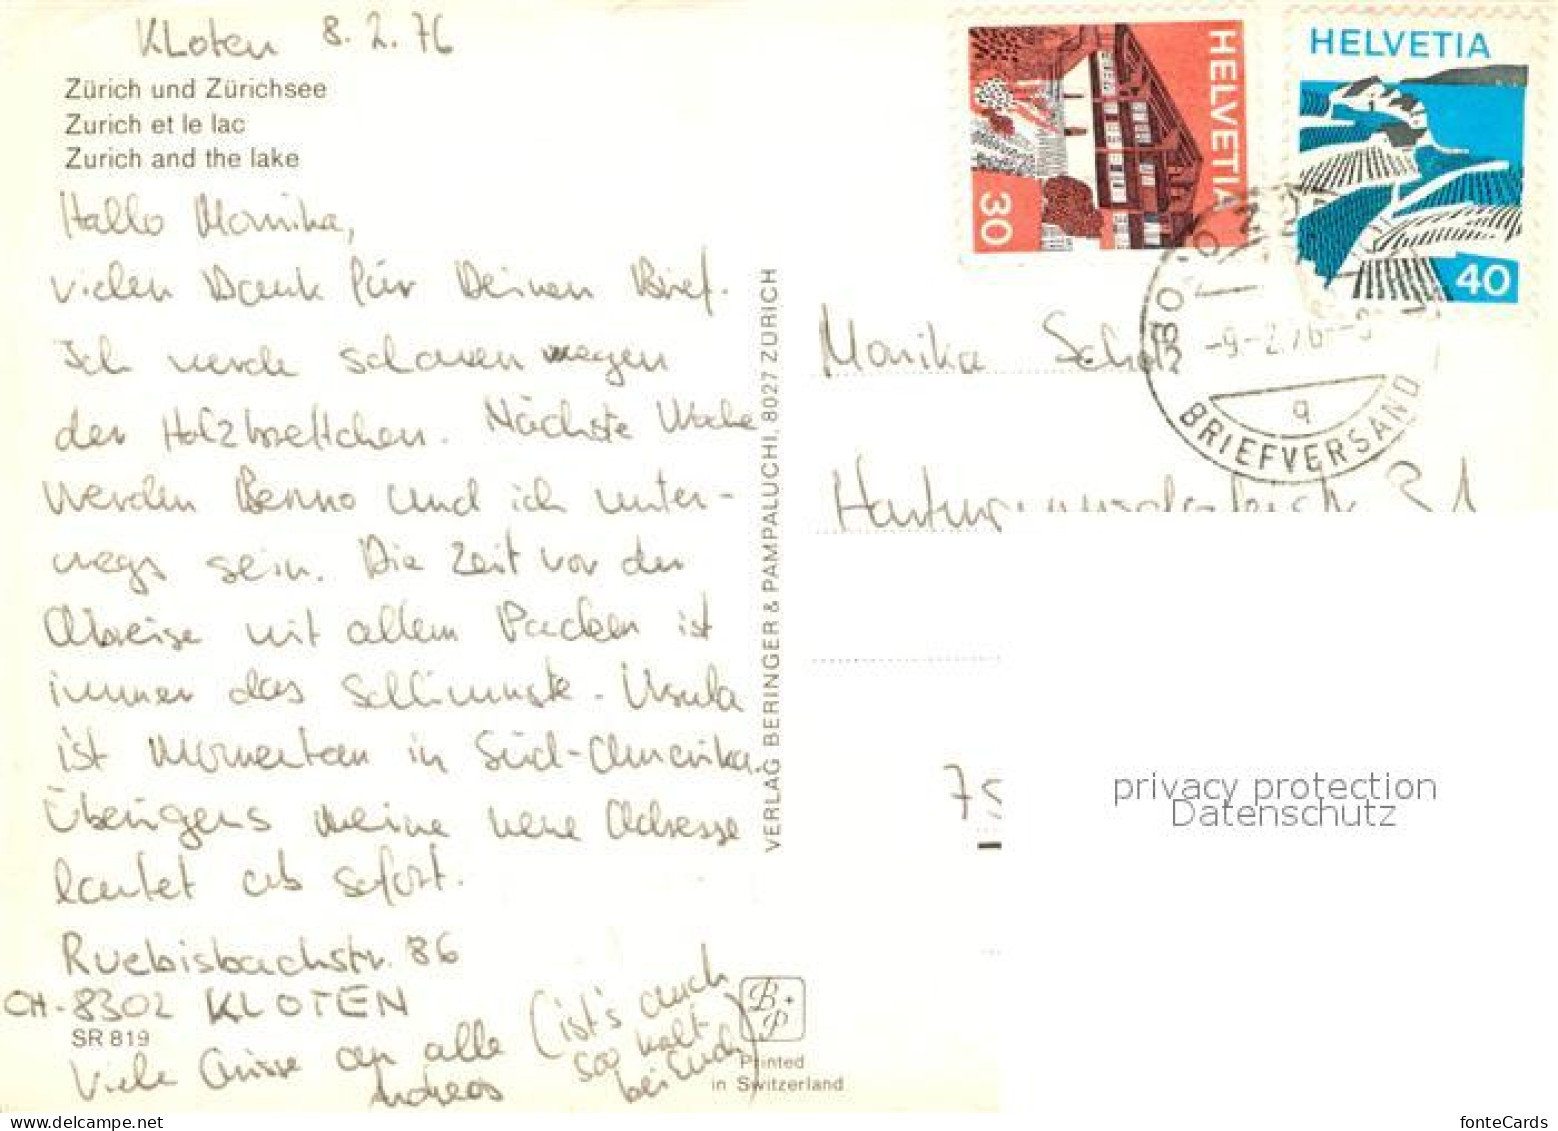 Kloten 8.2.76
Zürich und Zürichsee
Zurich et le lac
Zurich and the lake
Hallo Monika,
vielen Dank für Deinen Brief.
Ich werde schauen wegen
den Holzbrettchen. Nächste Woche
werden Benno und ich unter-
wegs sein. Die Zeit vor der
Abreise mit allem Packen ist
immer das Schlimmste. Ursula
ist momentan in Süd-Amerika.
Übrigens meine neue Adresse
lautet ab sofort.
Ruebisbachstr. 86
CH-8302 KLOTEN
SR 819
Viele Grüsse an alle
Andreas
(ist's auch
soo kalt
bei Euch)
VERLAG BERINGER & PAMPALUCHI, 8027 ZÜRICH
B+P
Printed
in Switzerland
HELVETIA
30
HELVETIA
40
-9.-2.76-
q
BRIEFVERSAND
Monika Scholz
31
75
privacy protection
Datenschutz
www.delcampe.net
fonteCards